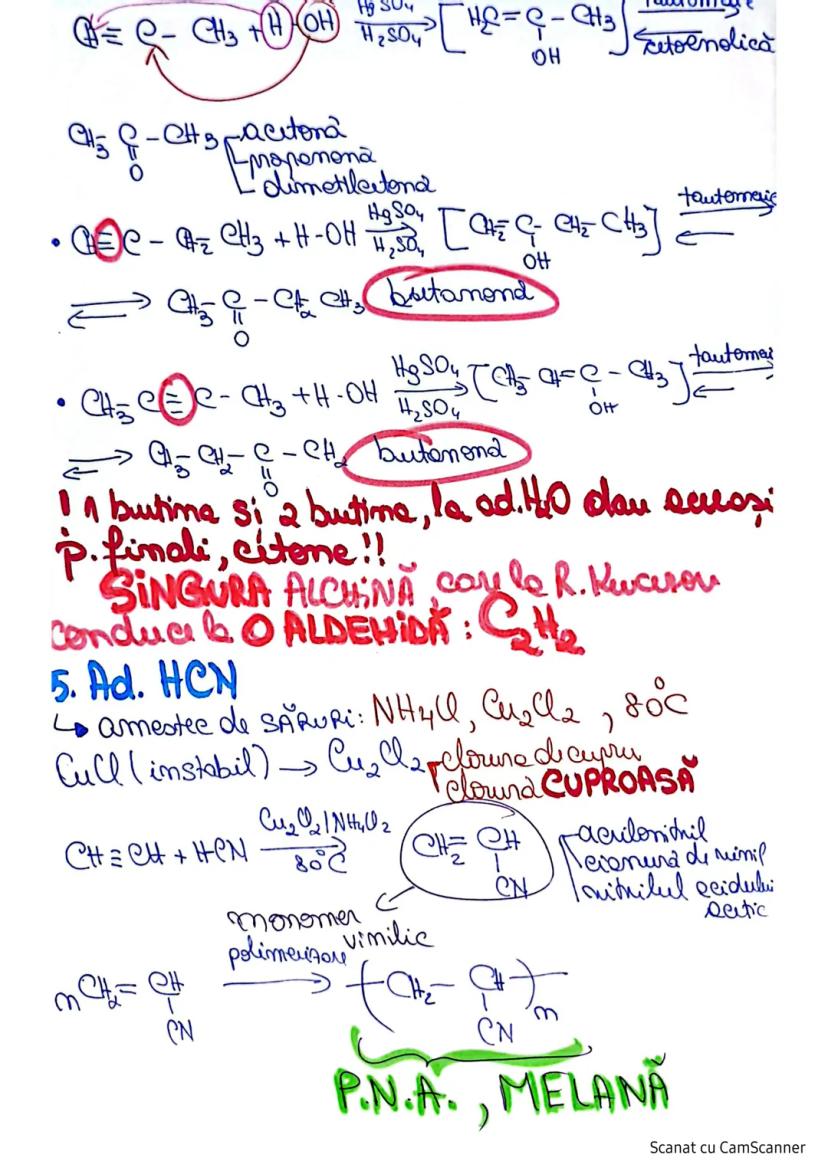 CH≡C-CH3+H-OH HgSO4/H2SO4 [H2C=C-CH3] tautomerie
OH cetoenolică
CH3-C-CH3 acetonă
O propanonă
dimetilcetonă
• CH≡C-CH2-CH3+H-OH HgSO4/H2SO4 [CH2=C-CH2-CH3] tautomerie
OH
⇌ CH3-C-CH2-CH3 butanonă
O
• CH3-C≡C-CH3+H-OH HgSO4/H2SO4 [CH3-CH=C-CH3] tautomer
OH
⇌ CH3-CH2-C-CH2 butanonă
O
! 1 butina și 2 butina, la ad. H2O dau aceiași
p. finali, cetone!!
SINGURA ALCHINĂ, care la R. Kucerov
conduce la O ALDEHIDĂ : C2H2
5. Ad. HCN
↳ amestec de SĂRURI: NH4Cl, Cu2Cl2, 80°C
CuCl (instabil) → Cu2Cl2 clorura de cupru
clorură CUPROASĂ
CH≡CH+HCN Cu2Cl2/NH4Cl2 80°C CH2=CH acrilonitril
CN cianură de vinil
nitrilul acidului
acetic
monomer
vinilic
nCH2=CH polimerizare → (CH2-CH)n
CN CN
P.N.A., MELANĂ
Scanat cu CamScanner